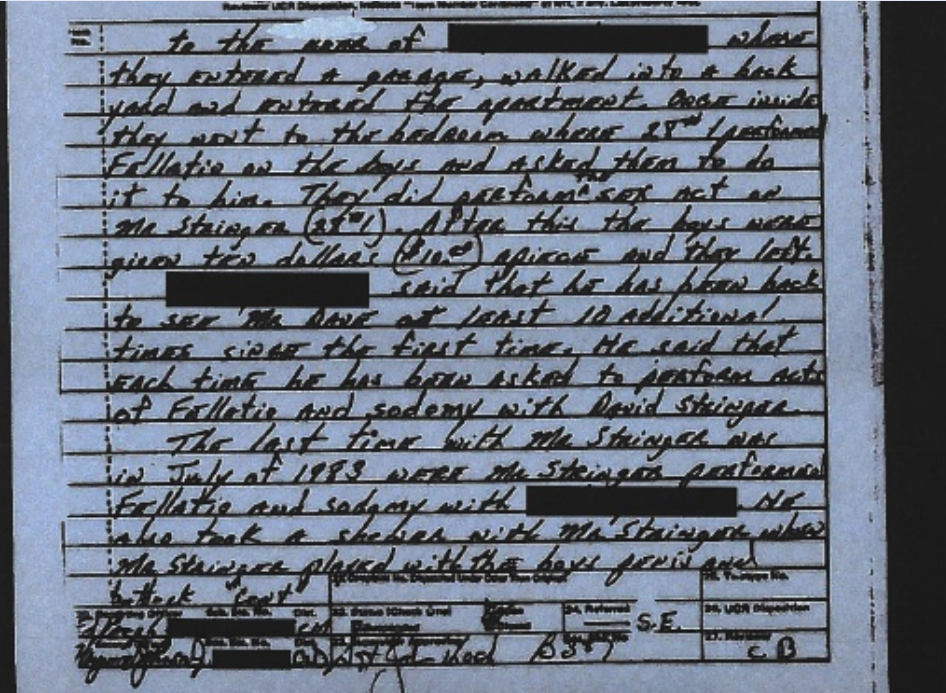 to the area of where
they entered a garage, walked into a back
yard and entered the apartment. Once inside
they went to the bedroom where 28 W/1 performed
Fellatio on the boys and asked them to do
it to him. They did perform the sex act on
Mr Stringer (28 W/1). After this the boys were
given ten dollars ($10.00) apiece and they left.
said that he has been back
to see Mr Dave at least 10 additional
times since the first time. He said that
each time he has been asked to perform acts
of Fellatio and sodomy with David Stringer.
The last time with Mr Stringer was
in July of 1983 were Mr Stringer performed
Fellatio and sodomy with . He
also took a shower with Mr Stringer when
Mr Stringer played with the boys penis and
buttock "Cont"
24. Referred
S.E.
26. UCR Disposition
CB